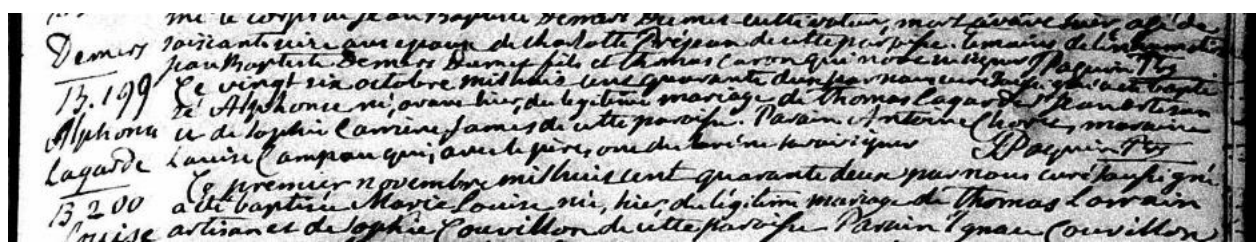 me le corps de Jean Baptiste Demers Dumet cultivateur, mort avant hier, agé de
Demers soixante ans epoux de Charlotte Préjean de cette paroisse. temoins de l'inhumation
Jean Baptiste Demers Dumet fils et Thomas Caron qui n'ont su signer JPaquin Ptre
B. 199 Ce vingt six octobre mil huit cent quarante deux par nous curé soussigné a été bapti
Alphonse sé Alphonse né, avant hier, du legitime mariage de Thomas Lagarde St Jean artisan
et de Sophie Carrière James de cette paroisse. Parain Antoine marraine
Lagarde Louise Campau qui, avec le père, ont declaré ne savoir signer JPaquin Ptre
Ce premier novembre mil huit cent quarante deux par nous curé soussigné
B. 200 a été baptisée Marie Louise née, hier du légitime mariage de Thomas Lorrain
Louise artisan et de Sophie Couvillon de cette paroisse Parain Ignace Couvillon